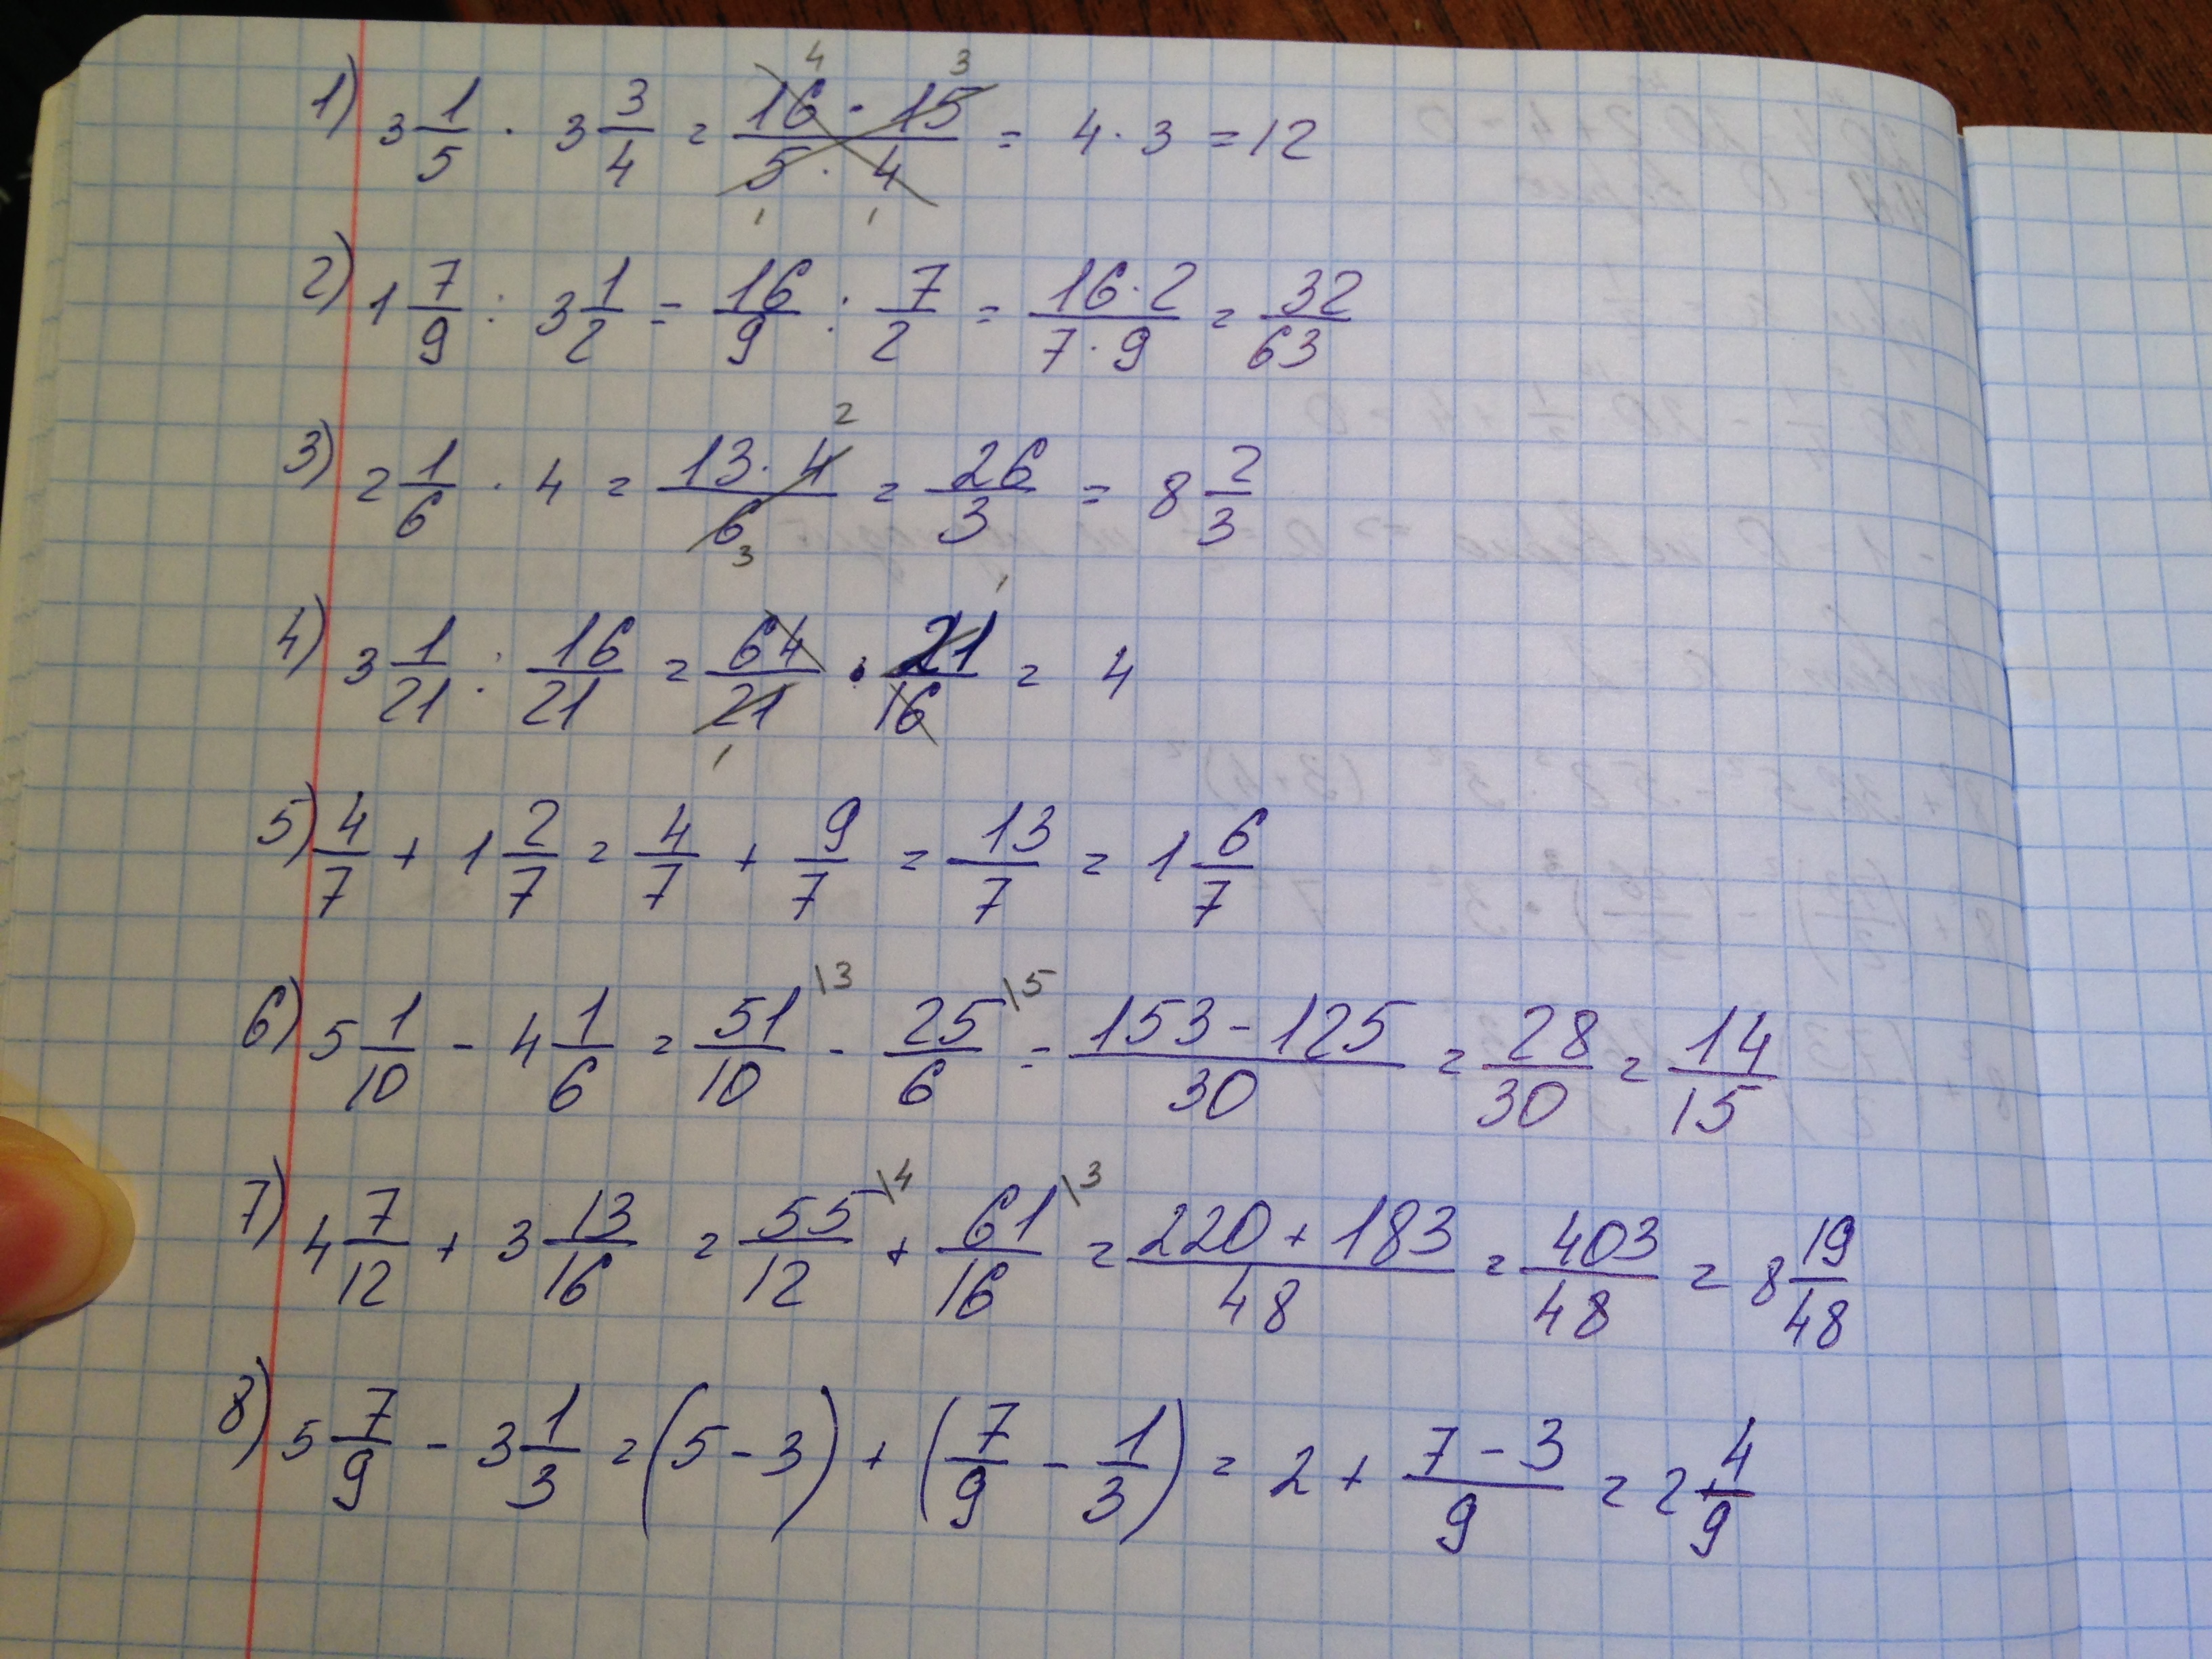 1) 3 1/5 · 3 3/4 = (16 · 15)/(5 · 4) = 4 · 3 = 12
2) 1 7/9 : 3 1/2 = 16/9 : 7/2 = (16 · 2)/(7 · 9) = 32/63
3) 2 1/6 · 4 = (13 · 4)/6 = 26/3 = 8 2/3
4) 3 1/21 : 16/21 = 64/21 · 21/16 = 4
5) 4/7 + 1 2/7 = 4/7 + 9/7 = 13/7 = 1 6/7
6) 5 1/10 - 4 1/6 = 51/10 \3 - 25/6 \5 = (153 - 125)/30 = 28/30 = 14/15
7) 4 7/12 + 3 13/16 = 55/12 \4 + 61/16 \3 = (220 + 183)/48 = 403/48 = 8 19/48
8) 5 7/9 - 3 1/3 = (5 - 3) + (7/9 - 1/3) = 2 + (7 - 3)/9 = 2 4/9